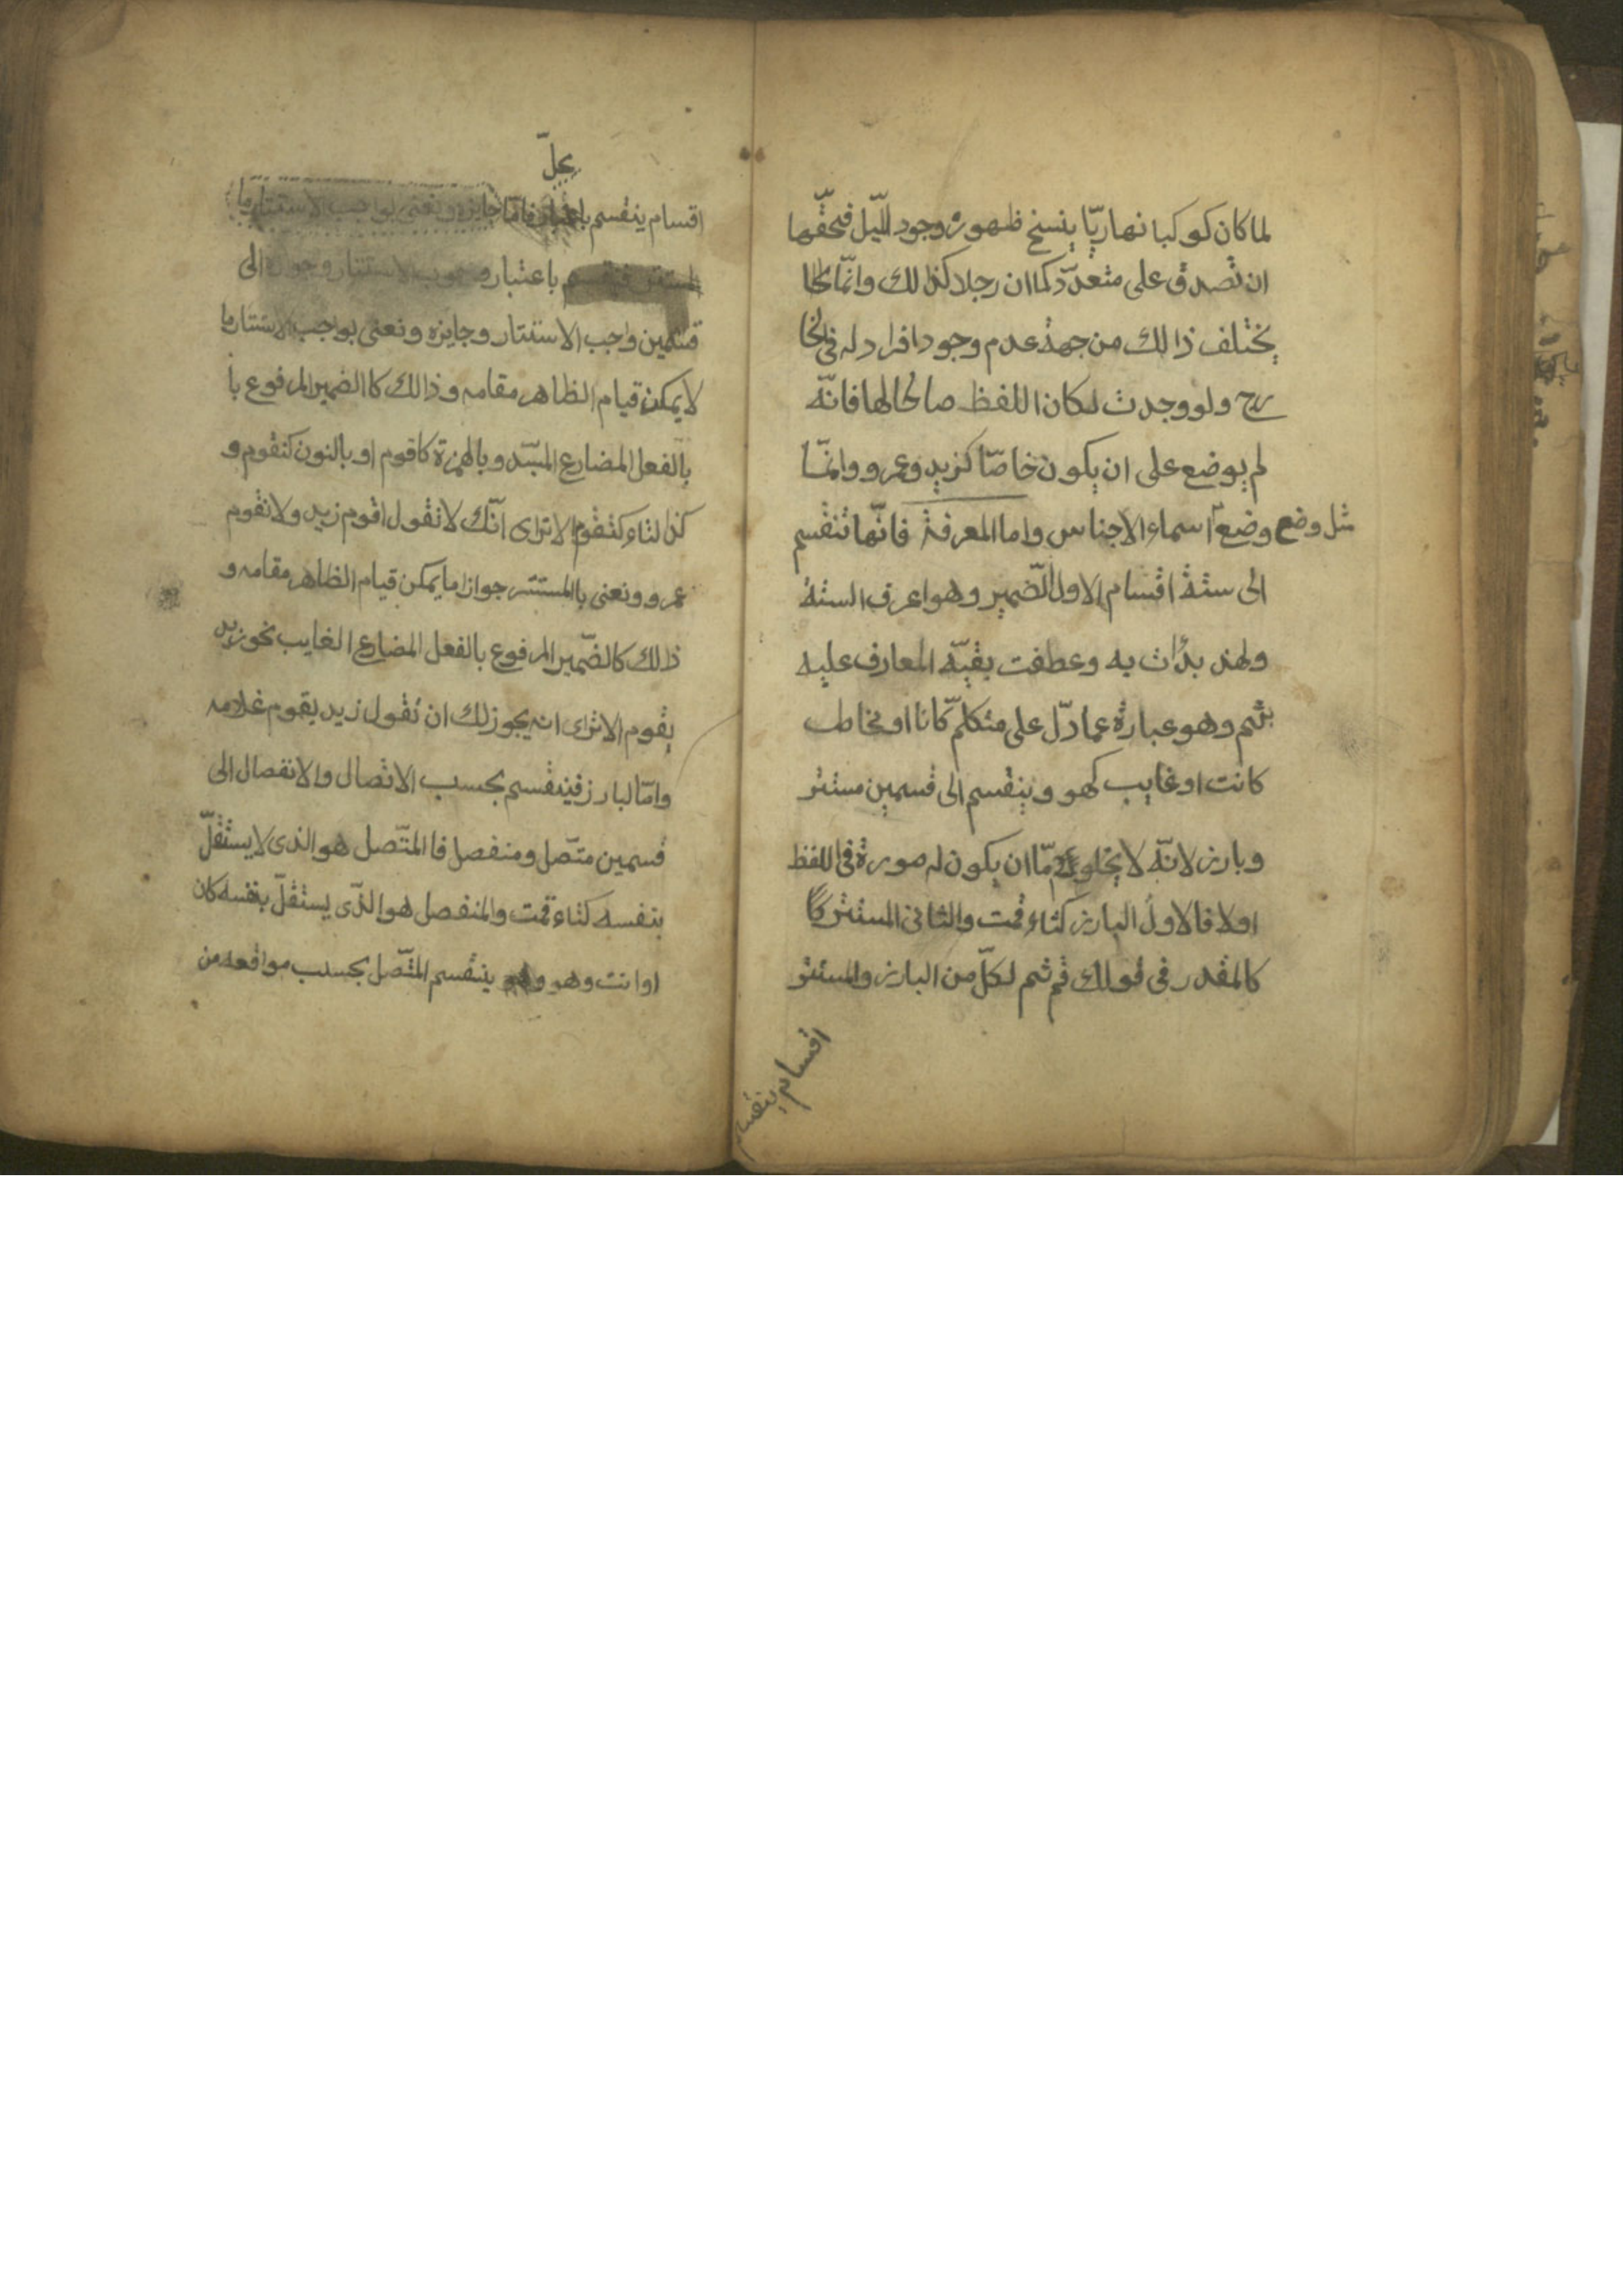 لما كان كوكبا نهاريّا ينسخ ظهوره وجود اللّيل فحقّها
ان تصدق على متعدّد كما ان رجلا كذلك وانّما
يختلف ذالك من جهة عدم وجود افراد له فى الخا
رج ولو وجدت لكان اللفظ صالحا لها فانّه
لم يوضع على ان يكون خاصّا كزيد وعمرو وانّما
وضع اسماء الاجناس واما المعرفة فانّها تنقسم
مثل وضع
الى ستة اقسام الاول الضّمير وهو اعرف الستة
ولهذ بدأت به وعطفت بقيّة المعارف عليه
بثم وهو عبارة عما دلّ على متكلّم كانا او مخاطب
كانت او غايب كهو وينقسم الى قسمين مستتر
وبارز لانّه لا يخلو امّا ان يكون له صورة فى اللفظ
اولا فالاول البارز كتاء قمت والثانى المستتر
كالمقدر فى قولك قم ثم لكلّ من البارز والمستتر
اقسام ينقسم
اقسام ينقسم باعتبار فامّا جايزه ونعنى بواجب الاستتار ما
المستتر فينقسم باعتبار وجوب الاستتار وجوازه الى
قسمين واجب الاستتار وجايزه ونعنى بواجب الاستتار ما
لا يمكن قيام الظاهر مقامه وذالك كا الضمير المرفوع با
بالفعل المضارع وبالهمزة كاقوم او بالنون كنقوم و
كذا لتاء كتقوم الا ترى انّك لا تقول اقوم زيد ولا نقوم
عمرو ونعنى بالمستتر جوازا ما يمكن قيام الظاهر مقامه و
ذلك كالضّمير المرفوع بالفعل المضارع الغايب نحو زيد
يقوم الا ترى انه يجوز لك ان تقول زيد يقوم غلامه
وامّا لبارز فينقسم بحسب الاتصال والانفصال الى
قسمين متّصل ومنفصل فا المتّصل هو الذى لا يستقلّ
بنفسه كتاء قمت والمنفصل هو الذّى يستقلّ بنفسه كان
اوانت وهو وهو ينقسم المتّصل بحسب مواقعه من